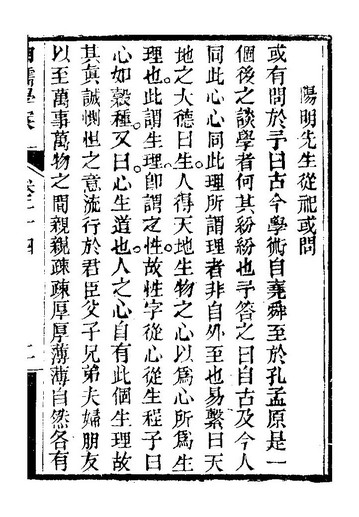 陽明先生從祀或問
或有問於予曰古今學術自堯舜至於孔孟原是一
個後之談學者何其紛紛也予答之曰自古及今人
同此心心同此理所謂理者非自外至也易繫曰天
地之大德曰生人得天地生物之心以爲心所爲生
理也此謂生理卽謂之性故性字從心從生程子曰
心如穀種又曰心生道也人之心自有此個生理故
其真誠惻怛之意流行於君臣父子兄弟夫婦朋友
以至萬事萬物之間親親疎疎厚厚薄薄自然各有
明儒學案 卷三十四 二